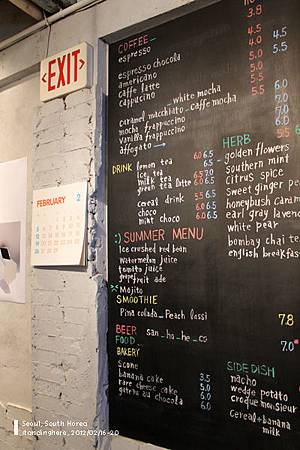 <EXIT>
FEBRUARY 2
COFFEE
espresso 3.8
espresso chocola 4.0
americano 4.0 4.5
caffe latte 4.5
cappucino 5.0 5.5
_white mocha 5.5
caramel macchiato _caffe mocha 5.5
mocha frappuccino
vanilla frappuccino
affogato
DRINK lemon tea 6.0 6.5
ice tea
milk tea
green tea latte 6.0 6.5
cereal drink 5.5
choco
mint choco 6.0
HERB
golden flowers
southern mint
citrus spice
Sweet ginger
honeybush caram
earl gray lavend
white pear
bombay chai te
english breakfas
:) SUMMER MENU
Ice crushed red bean
Watermelon juice
tomato juice
grapefruit ade
Mojito
SMOOTHIE
Pina colada _ Peach lassi 7.8
BEER san_ho_he_co
FOOD
BAKERY
Scone
banana cake 3.5
rare cheese cake 5.0
gateau au chocolat 6.0
SIDE DISH
nacho
wedge potato
croque monsieur
Cereal+banana
milk
Seoul, South Korea
itanclinghere_2012/02/16-20